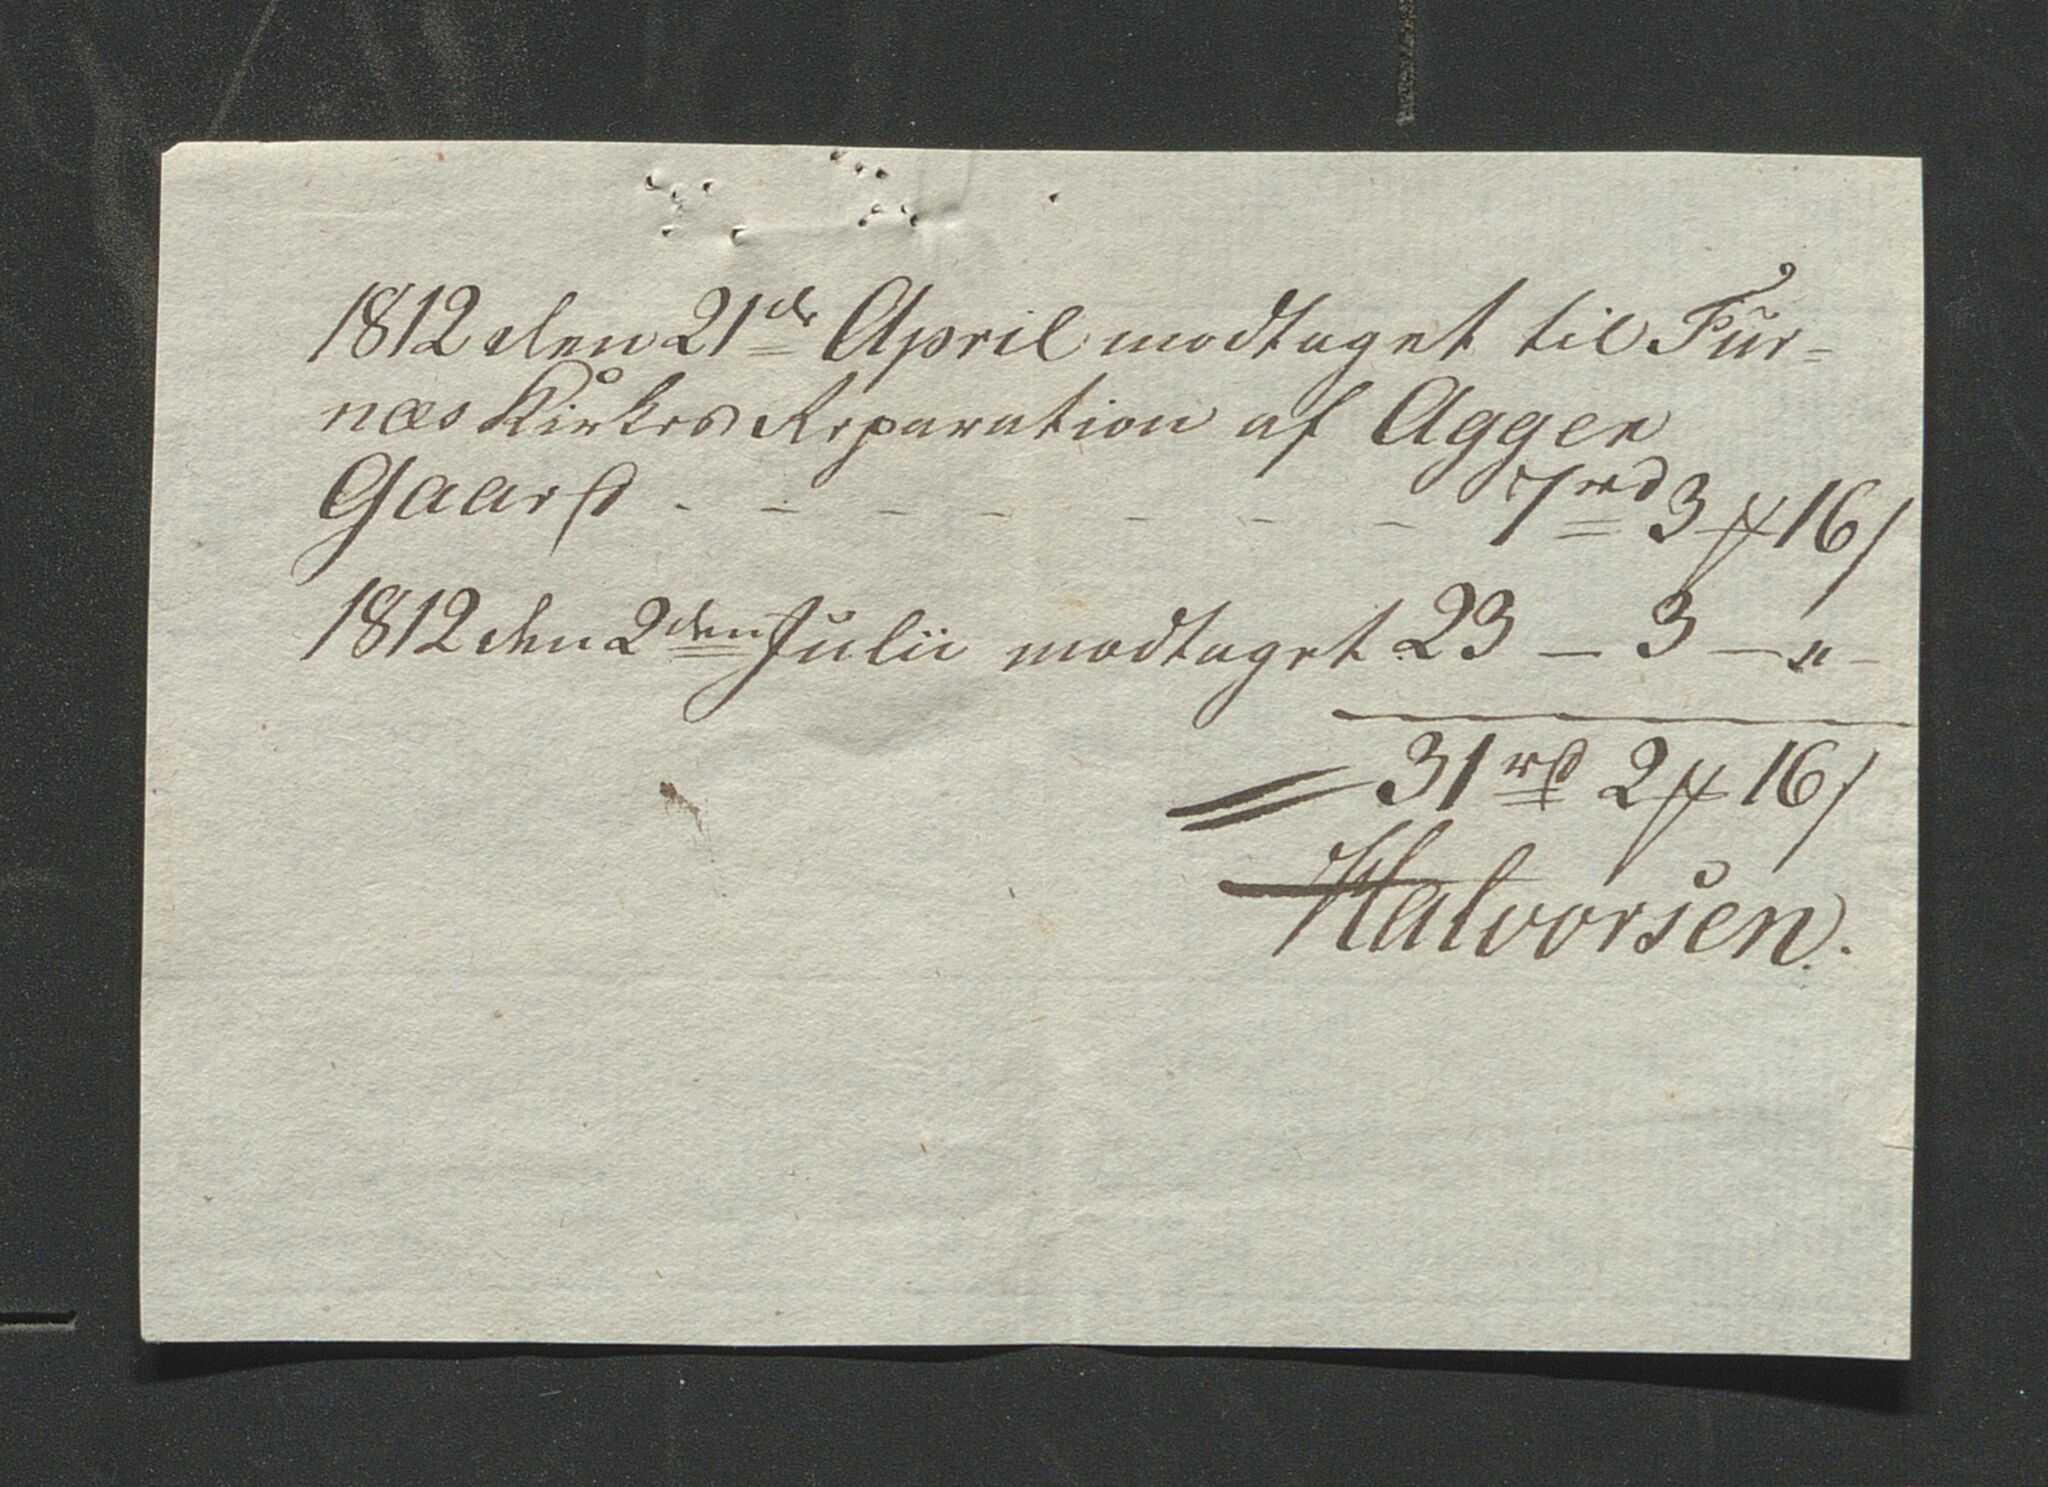 1812 den 21de April modtaget til Fur=
næs Kirkes Reparation af Agger
Gaard - - - - - - - 7 rd 3 ꝑ 16 /
1812 den 2den Julii modtaget 23 - 3 - " -
31 rd 2 ꝑ 16 /
Halvorsen.